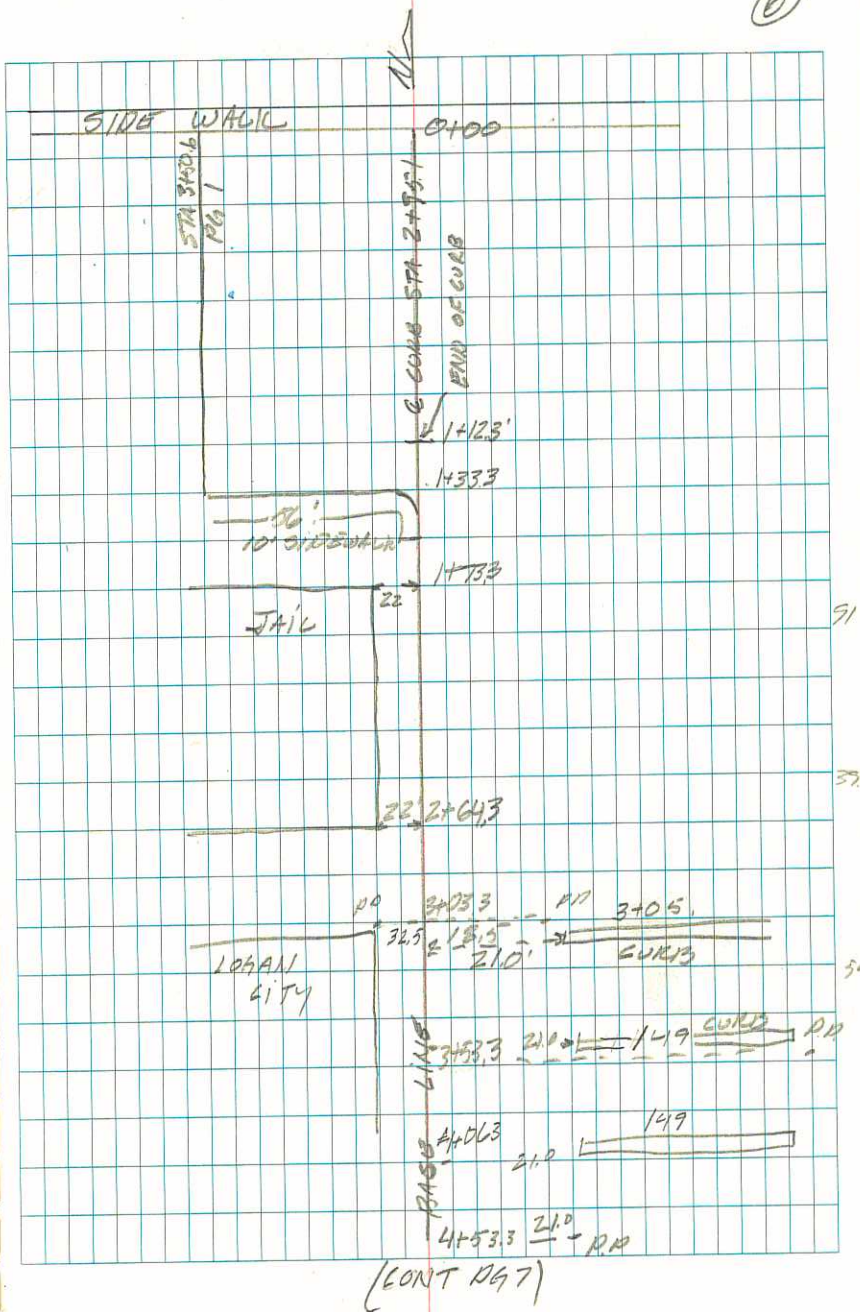 6
N
SIDE WALK 0+00
STA 3+50.6
PG 1
℄ CURB STA 2+95.1
END OF CURB
1+12.3'
1+33.3
56'
10' SIDEWALK
1+73.3
22'
JAIL
51
39.
22' 2+64.3
PP 3+03.3 PP 3+05.
32.5 18.5
21.0' CURB
LOGAN
CITY
BASE LINE
3+53.3 21.0 149 CURB P.P.
4+06.3 149
21.0
4+53.3 21.0 P.P.
(CONT PG 7)